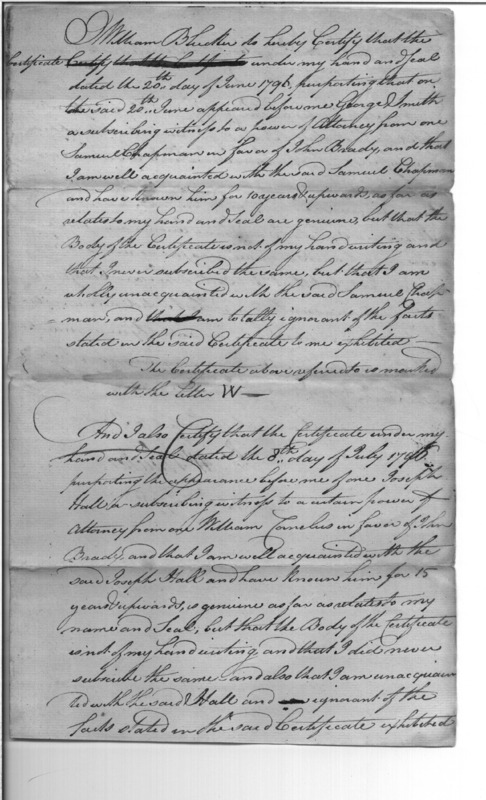 I William Bleeker do hereby Certify that the
Certificate under my hand and Seal
dated the 20th day of June 1796, purporting that on
the said 20th June appeared before me George Smith
a subscribing witness to a power of Attorney from one
Samuel Chapman in favor of John Brady, and that
I am well acquainted with the said Samuel Chapman
and have known him for 10 years & upwards, as far as
relates to my hand and Seal are genuine, but that the
Body of the Certificate is not of my hand writing and
that I never subscribed the same, but that I am
wholly unacquainted with the said Samuel Chap-
-man, and am totally ignorant of the facts
stated in the said Certificate to me exhibited —
The Certificate above refered to is marked
with the letter W —
And I also Certify that the Certificate under my
hand and Seal dated the 8th day of July 1796
purporting the appearance before me of one Joseph
Hall a subscribing witness to a certain power of
Attorney from one William Cornelius in favor of John
Brady, and that I am well acquainted with the
said Joseph Hall and have known him for 15
years & upwards, is genuine as far as relates to my
name and Seal, but that the Body of the Certificate
is not of my hand writing, and that I did never
subscribe the same and also that I am unacquain
ted with the said Hall and ignorant of the
facts stated in the said Certificate exhibited